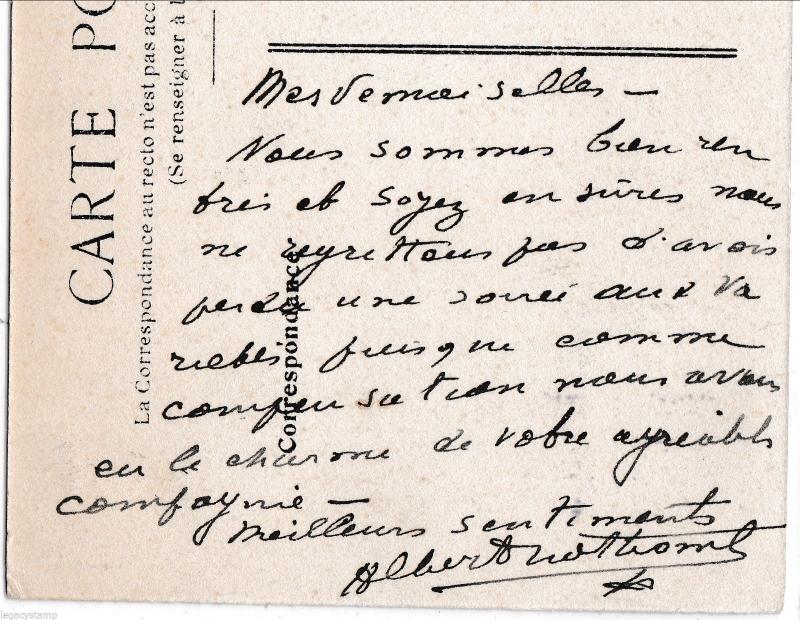 CARTE PO
La Correspondance au recto n'est pas acc
(Se renseigner à l
Correspondance
Mesdemoiselles —
Nous sommes bien ren
trés et soyez en sûres nous
ne regrettons pas d'avoir
perdu une soirée aux Va
riétés puisque comme
compensation nous avons
eu le charme de votre agréable
compagnie —
Meilleurs sentiments
Albert
legacystamp